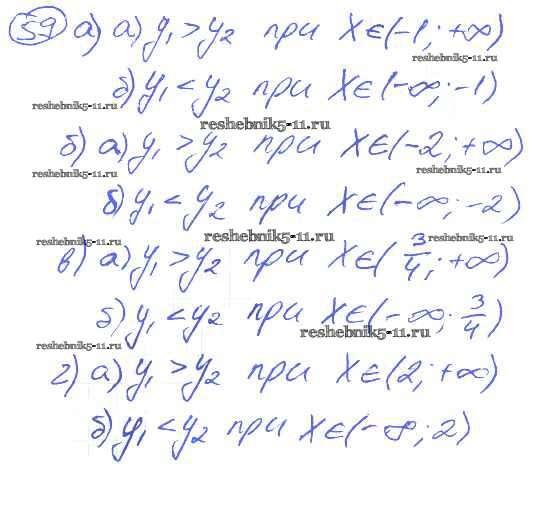 59) а) а) y₁ > y₂ при x∈(-1; +∞)
reshebnik5-11.ru
б) y₁ < y₂ при x∈(-∞; -1)
reshebnik5-11.ru
reshebnik5-11.ru
б) а) y₁ > y₂ при x∈(-2; +∞)
reshebnik5-11.ru reshebnik5-11.ru
б) y₁ < y₂ при x∈(-∞; -2)
reshebnik5-11.ru reshebnik5-11.ru reshebnik5-11.ru
в) а) y₁ > y₂ при x∈(3/4; +∞)
б) y₁ < y₂ при x∈(-∞; 3/4)
reshebnik5-11.ru
reshebnik5-11.ru
г) а) y₁ > y₂ при x∈(2; +∞)
б) y₁ < y₂ при x∈(-∞; 2)